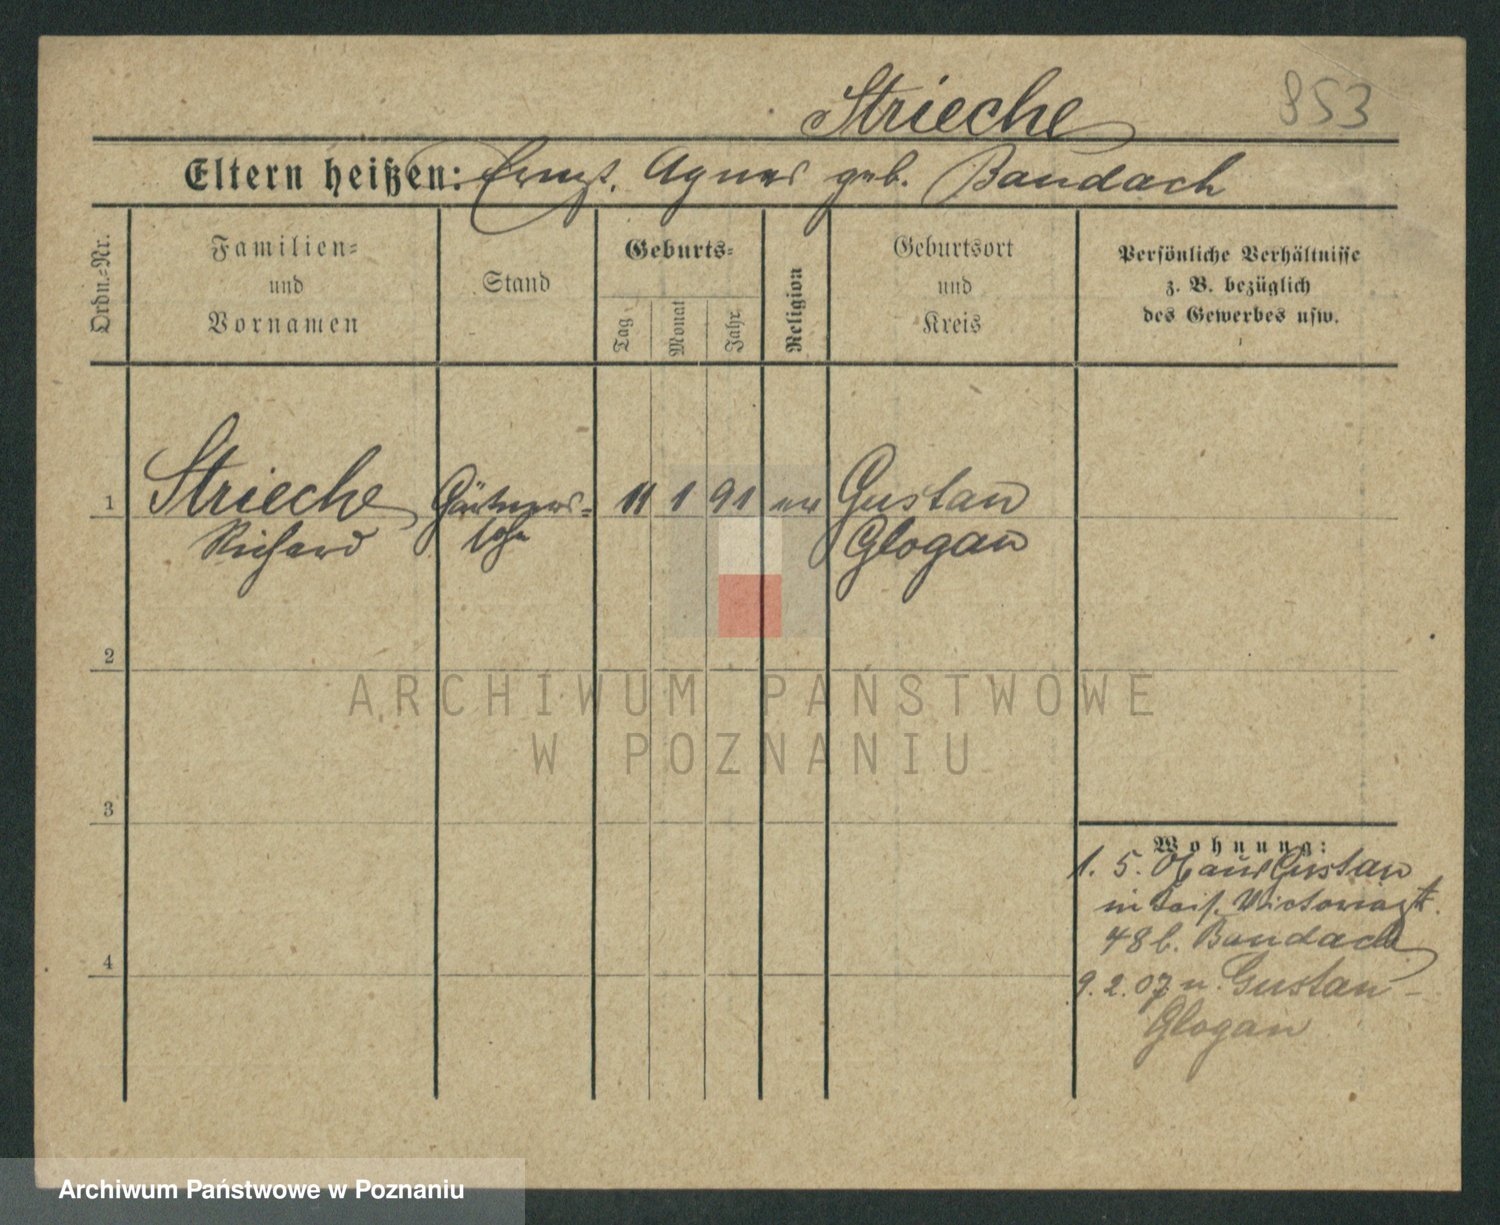 Strieche
353
Eltern heißen: Ernst. Agnes geb. Baudach
Ordn.-Nr.
Familien-
und
Vornamen
Stand
Geburts-
Tag
Monat
Jahr
Religion
Geburtsort
und
Kreis
Persönliche Verhältnisse
z. B. bezüglich
des Gewerbes usw.
1 Strieche Gärtners- 11 1 91 ev Gustau
Richard sohn Glogau
2
3
4
Wohnung:
1. 5. 06 aus Gustau
in
48 b. Baudach
9. 2. 07 n. Gustau-
Glogau
ARCHIWUM PAŃSTWOWE
W POZNANIU
Archiwum Państwowe w Poznaniu